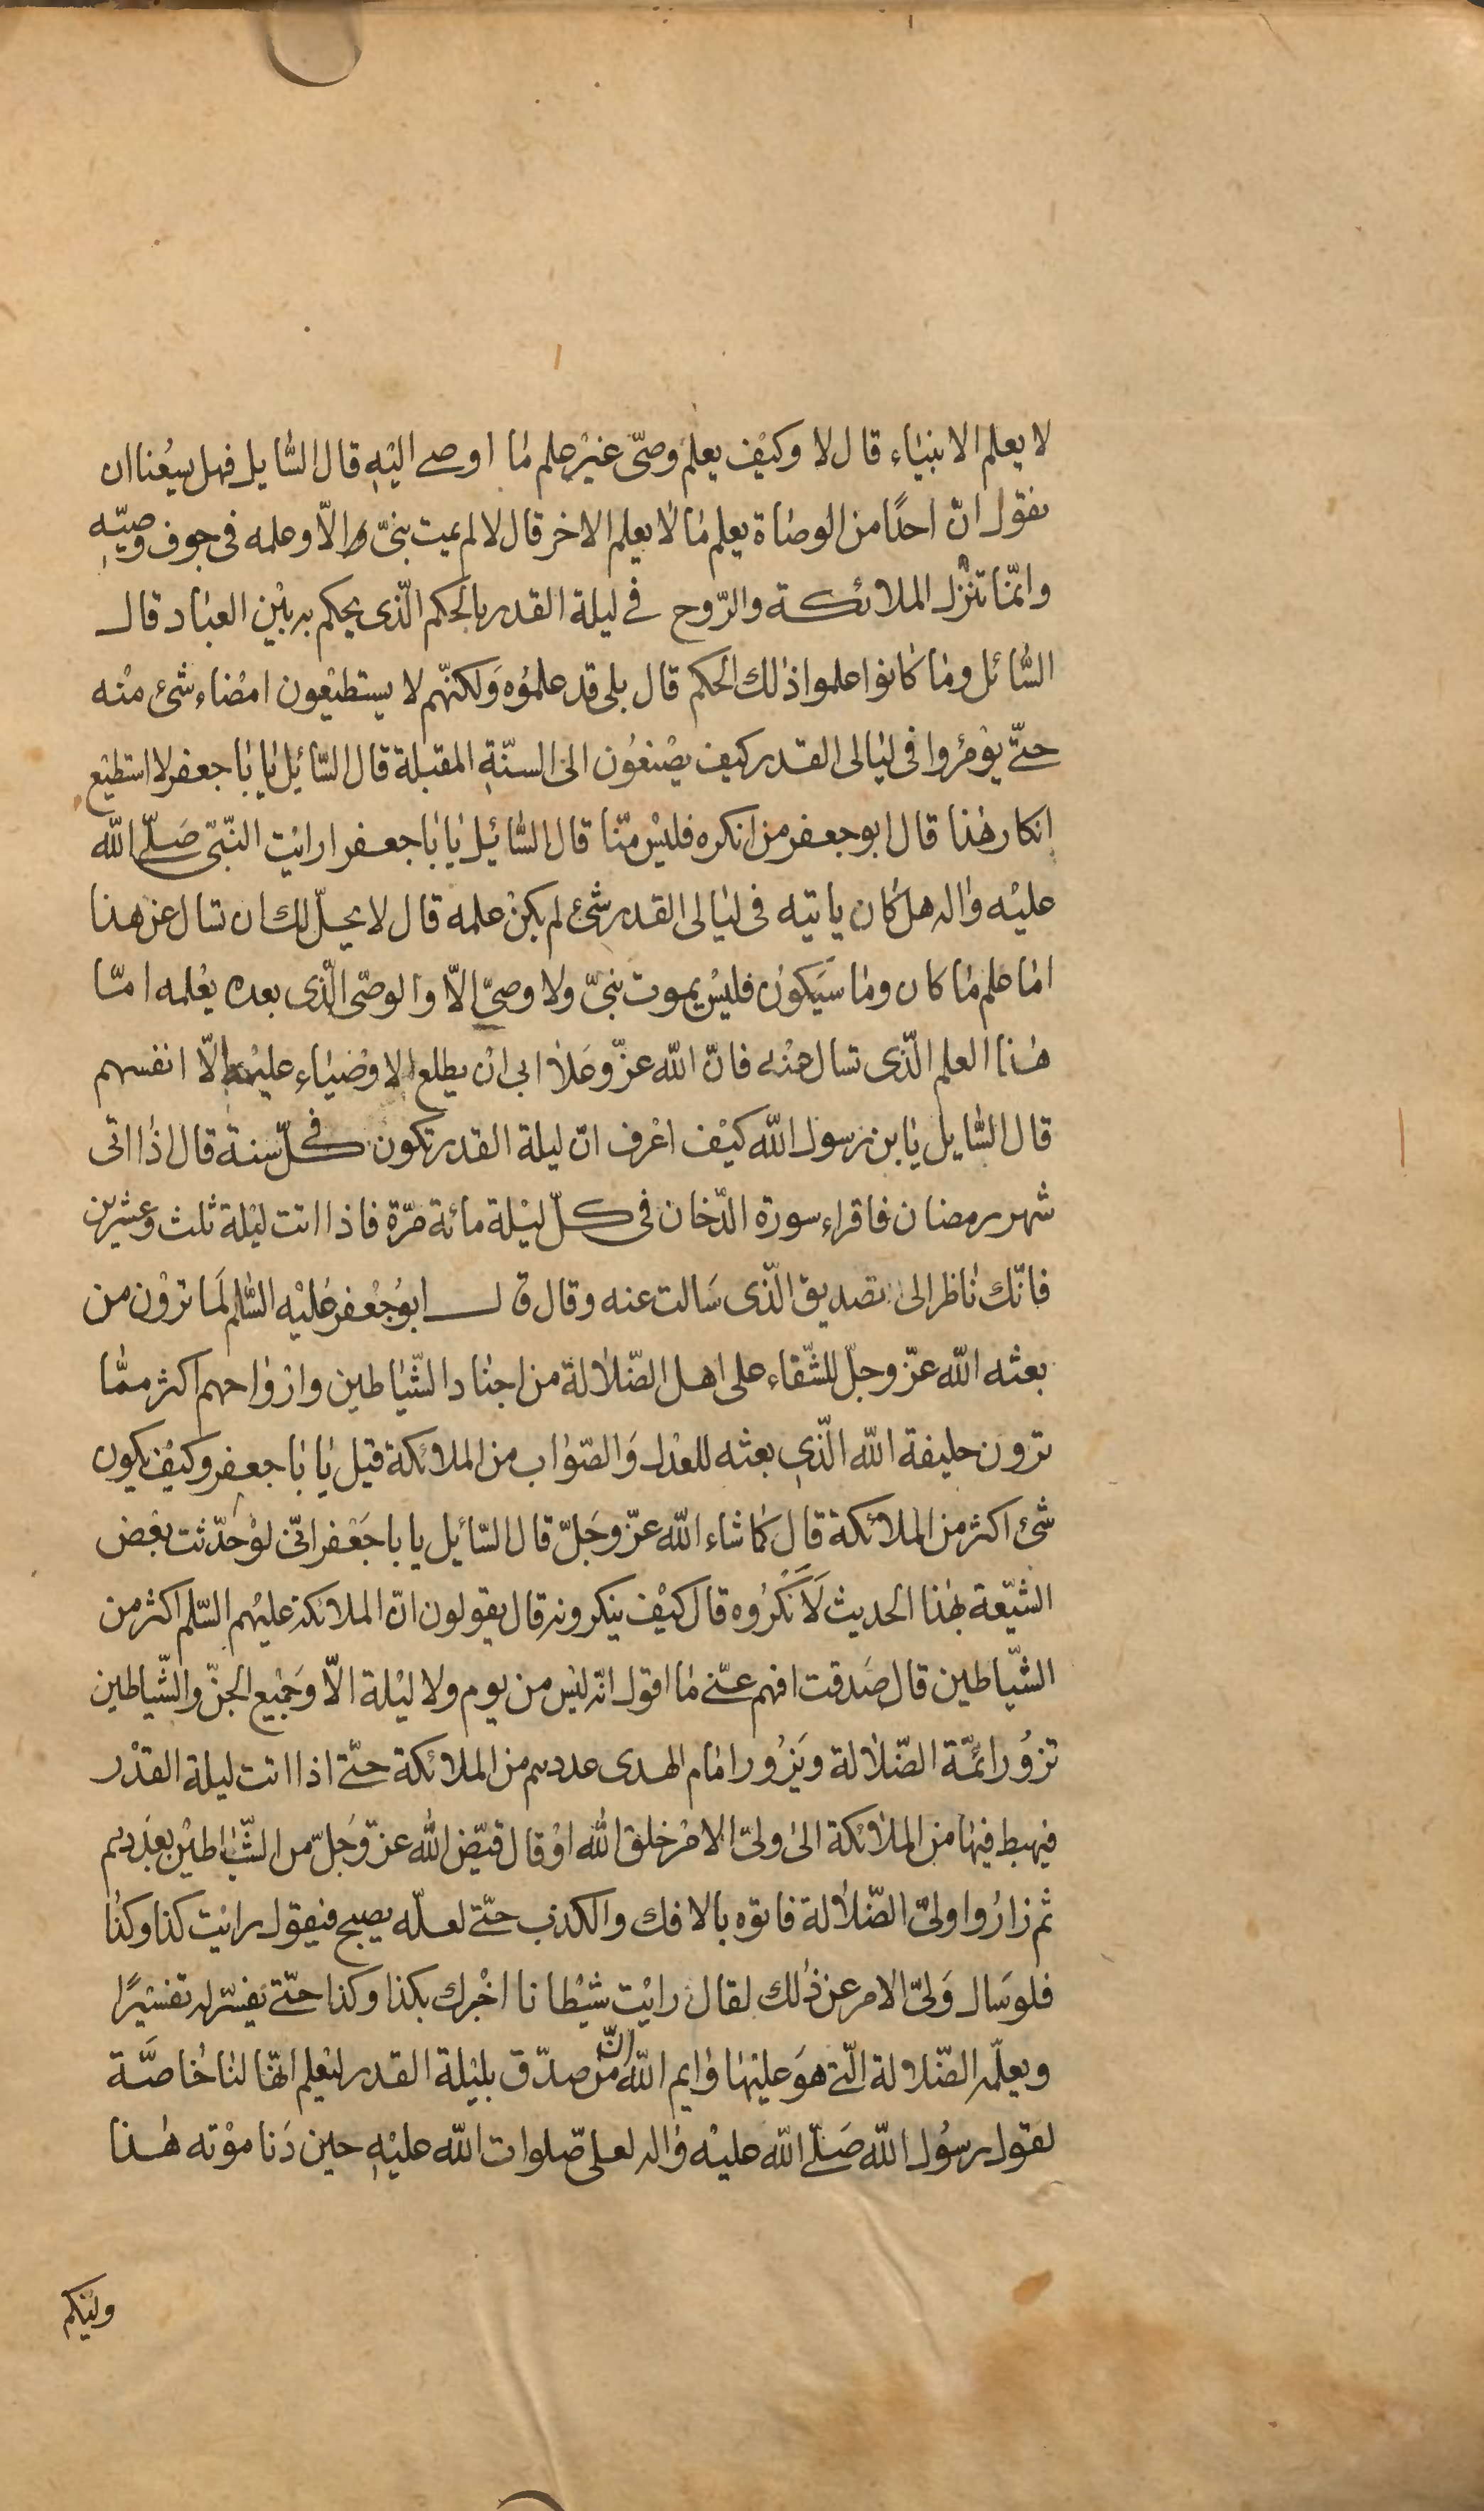 لا يعلم الانبياء قال لا وكيف يعلم وصىّ غير علم ما اوصے اليه قال السّايل فهل يسعنا ان
نقول انّ احدًا من الوصاة يعلم ما لا يعلم الاخر قال لا لم يمت نبىّ الّا وعلمه فى جوف وصيّه
وانمّا تنزل الملائكة والرّوح فى ليلة القدر بالحكم الّذى يحكم به بين العباد قال
السّائل وما كانوا علموا ذلك الحكم قال بلى قد علموه ولكنّهم لا يستطيعون امضاء شئ منه
حتّى يؤمروا فى ليالى القدر كيف يصنعون الى السنّة المقبلة قال السّائل يا با جعفر لا استطيع
انكار هذا قال ابو جعفر من انكره فليس منّا قال السّائيل يا با جعفر ارايت النّبىّ صلّى الله
عليه واله هل كان ياتيه فى ليالى القدر شئ لم يكن علمه قال لا يحلّ لك ان تسال عن هذا
اما علم ما كان وما سيكون فليس يموت نبىّ ولا وصىّ الّا والوصّى الّذى بعده يعلمه امّا
هذا العلم الّذى تسال عنه فانّ الله عزّ وعلا ابى ان يطلع الاوضياء عليه الّا انفسهم
قال السّايل يا بن رسول الله كيف اعرف انّ ليلة القدر تكون فى كلّ سنة قال اذا اتى
شهر رمضان فاقراء سورة الدّخان فى كلّ ليلة مائة مرّة فاذا اتت ليلة ثلث وعشرين
فانّك ناظر الى تصديق الّذى سالت عنه وقال قال ابو جعفر عليه السّلم لما ترون من
بعثه الله عزّ وجلّ للشّقاء على اهل الضّلالة من اجناد الشّياطين وازواحهم اكثر ممّا
ترون خليفة الله الّذى بعثه للعدل والصّواب من الملائكة قيل يا با جعفر وكيف يكون
شئ اكثر من الملائكة قال كما شاء الله عزّ وجلّ قال السّائيل يا با جعفر انّى لو حدّثت بعض
الشيّعة بهذا الحديث لانكروه قال كيف ينكرونه قال يقولون انّ الملائكة عليهم السّلم اكثر من
الشّياطين قال صدقت افهم عنّى ما اقول انّه ليس من يوم ولا ليلة الّا وجميع الجنّ والشّياطين
تزور ائمّة الضّلالة ويزور امام الهدى عددهم من الملائكة حتّى اذا اتت ليلة القدر
فيهبط فيها من الملائكة الى ولىّ الامر خلق الله او قال قيّض الله عزّ وجلّ من الشّياطين بعددهم
ثم زاروا ولىّ الضّلالة فاتوه بالافك والكذب حتّى لعلّه يصبح فيقول رايت كذا وكذا
فلو سال ولىّ الامر عن ذلك لقال رايت شيطانا اخبرك بكذا وكذا حتّى يفسّر له تفسيرًا
ويعلّمه الضّلالة الّتى هو عليها وايم الله انّ من صدّق بليلة القدر ليعلم انّها لنا خاصّة
لقول رسول الله صلّى الله عليه واله لعلى صلوات الله عليه حين دنا موته هذا
وليّكم